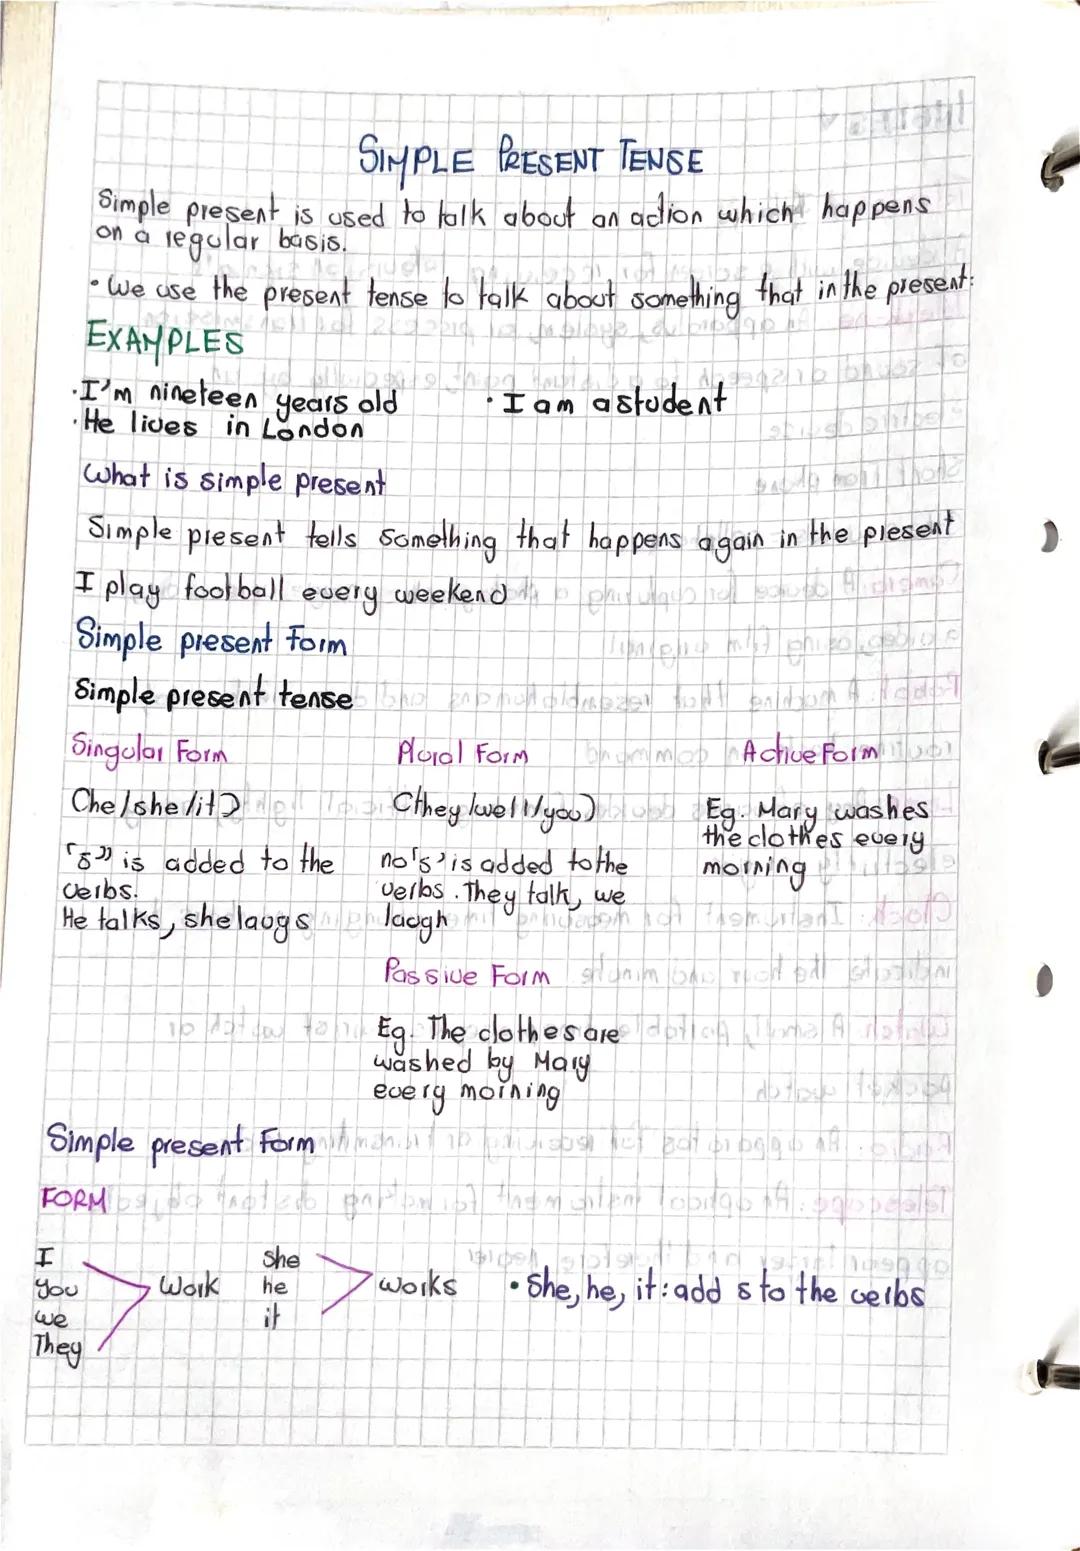 SIMPLE PRESENT TENSE
Simple present is used to talk about an action which happens
on a regular basis.
• We use the present tense to talk about something that in the present:
EXAMPLES
• I'm nineteen years old • I am a student
• He lives in London
What is simple present
Simple present tells something that happens again in the present
I play football every weekend
Simple present Form
Simple present tense
Singular Form Plural Form Active Form
(he/she/it) (they/we/I/you) Eg. Mary washes
the clothes every
"s" is added to the no 's' is added to the morning
verbs. verbs. They talk, we
He talks, she laugs laugh
Passive Form
Eg. The clothes are
washed by Mary
every morning
Simple present Form
FORM
I She
you Work he works • She, he, it: add s to the verbs
we it
They